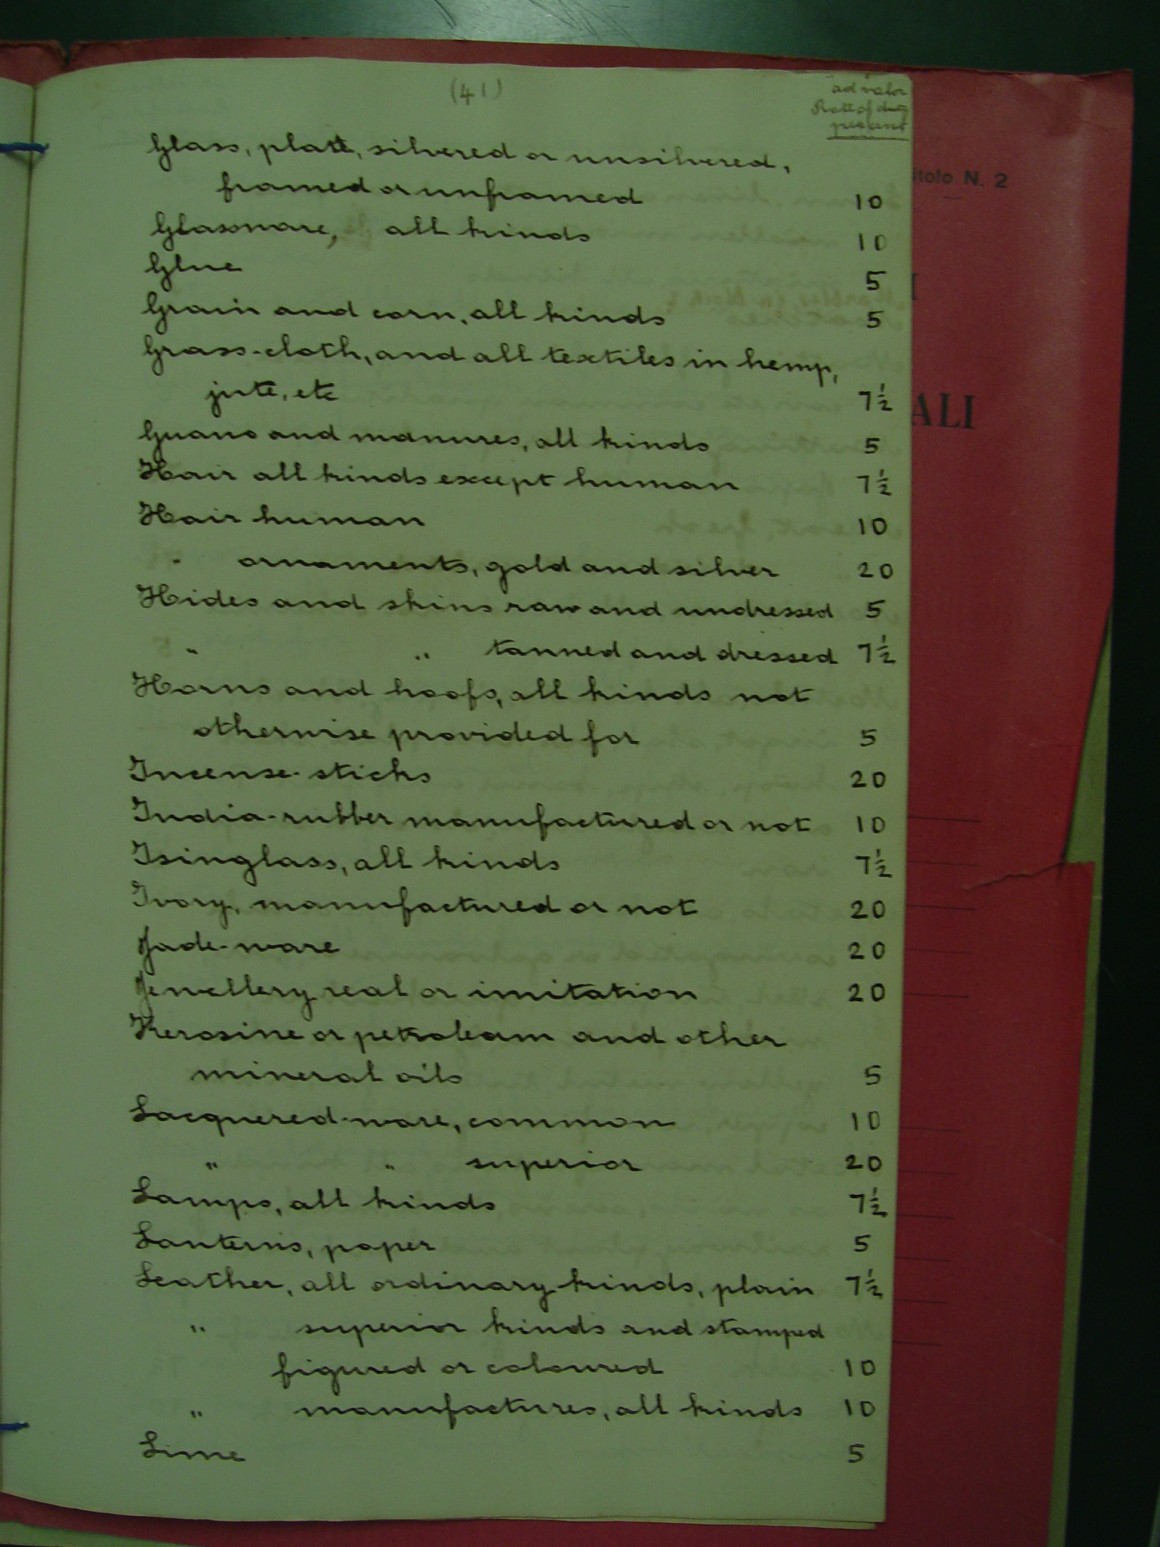 (41)
ad valor
Rate of duty
per cent
Glass, plate, silvered or unsilvered,
framed or unframed 10
Glassware, all kinds 10
Glue 5
Grain and corn, all kinds 5
Grass-cloth, and all textiles in hemp,
jute, etc 7½
Guano and manures, all kinds 5
Hair all kinds except human 7½
Hair human 10
" ornaments, gold and silver 20
Hides and skins raw and undressed 5
" " tanned and dressed 7½
Horns and hoofs, all kinds not
otherwise provided for 5
Incense-sticks 20
India-rubber manufactured or not 10
Isinglass, all kinds 7½
Ivory, manufactured or not 20
Jade-ware 20
Jewellery real or imitation 20
Kerosine or petroleum and other
mineral oils 5
Lacquered-ware, common 10
" " superior 20
Lamps, all kinds 7½
Lanterns, paper 5
Leather, all ordinary kinds, plain 7½
" superior kinds and stamped
figured or coloured 10
" manufactures, all kinds 10
Lime 5
itolo N. 2
ALI